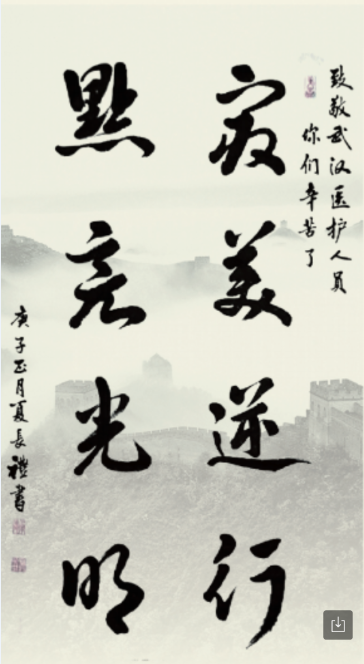 致敬武汉医护人员
你们辛苦了
最美逆行
點亮光明
庚子正月夏长禮書